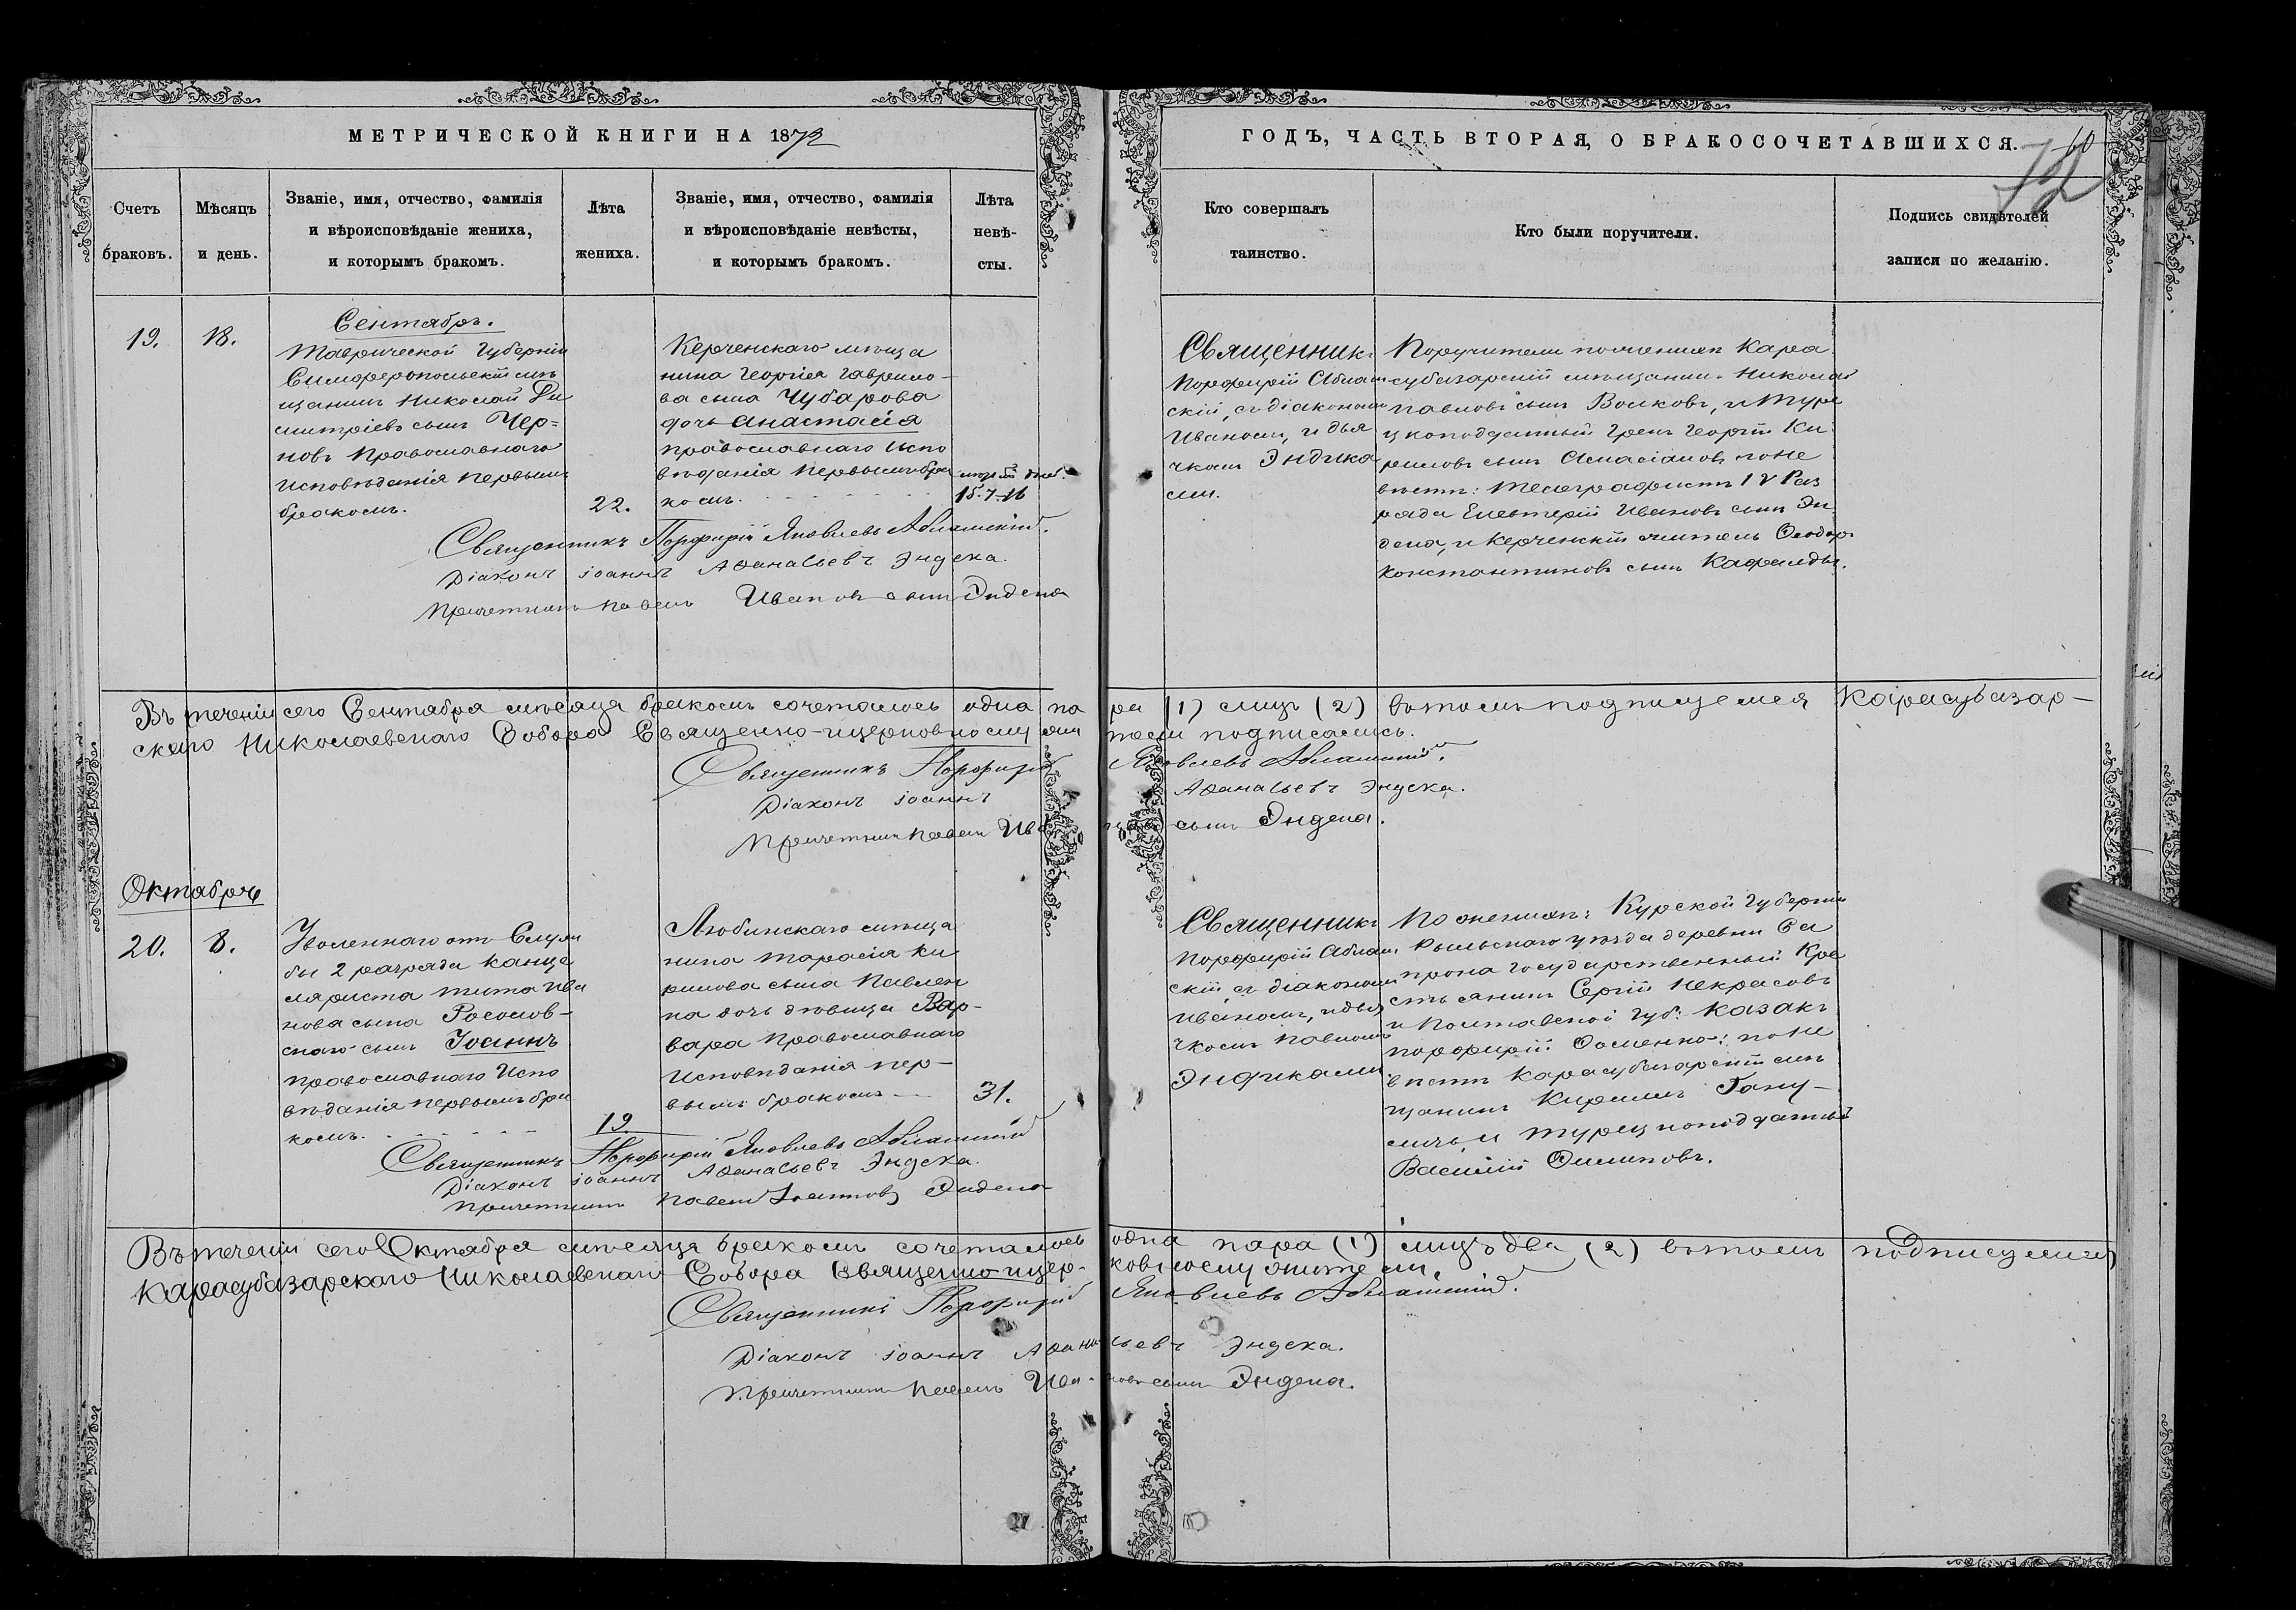 МЕТРИЧЕСКОЙ КНИГИ НА 1872
ГОДЪ, ЧАСТЬ ВТОРАЯ, О БРАКОСОЧЕТАВШИХСЯ.
60
72
Счетъ
браковъ.
Мѣсяцъ
и день.
Званіе, имя, отчество, фамилія
и вѣроисповѣданіе жениха,
и которымъ бракомъ.
Лѣта
жениха.
Званіе, имя, отчество, фамилія
и вѣроисповѣданіе невѣсты,
и которымъ бракомъ.
Лѣта
невѣ-
сты.
Кто совершалъ
таинство.
Кто были поручители.
Подпись свидѣтелей
записи по желанію.
Сентябрь.
19.
18.
Таврической Губерніи
Симферопольскій мѣ
щанинъ Николай Ди
митріевъ сынъ Чер=
новъ Православнаго
Исповѣданія первымъ
бракомъ.
22.
Керченскаго мѣща
нина Георгія Гаврило-
ва сына Чубарова
дочь Анастасія
православнаго Испо
вѣданія первымъ бра
комъ.
15. 7. 16
Священникъ
Порфирій Аблам
скій, съ діакономъ
Иваномъ, и дья
чкомъ Эндика
ми.
Поручители по женихѣ Кара
субазарскій мѣщанинъ Николай
Павловъ сынъ Волковъ, и Туре
цкоподданный Грекъ Георгій Ки
риловъ сынъ Асласіановъ по не
вѣстѣ: Телеграфистъ IV Раз
ряда Елевтерій Ивановъ сынъ Эн
дека, и Керченскій житель Ѳеодоръ
Константиновъ сынъ Кафалиды.
Священникъ Порфирій Яковлевъ Абламскій.
Діаконъ Іоаннъ Аѳанасьевъ Эндека.
Причетникъ Павелъ Ивановъ сынъ Эндека
Въ теченіи сего Сентября мѣсяца бракомъ сочеталось одна па ра (1) лицъ (2) въ томъ подписуемся Карасубазар-
скаго Николаевскаго Собора Священно-церковно служи тели подписались.
Священникъ Порфирій Яковлевъ Абламскій.
Діаконъ Іоаннъ Аѳанасьевъ Эндека.
Причетникъ Павелъ Ивановъ сынъ Эндека.
Октябрь
20.
8.
Уволеннаго отъ Служ
бы 2 разряда Канце
ляриста Тита Ива
нова сына Рософов-
скаго сынъ Іоаннъ
православнаго Испо
вѣданія первымъ бра
комъ.
19.
Любинскаго мѣща
нина Тарасія Ки
рилова сына Павлен
ка дочь дѣвица Вар-
вара Православнаго
Исповѣданія пер-
вымъ бракомъ
31.
Священникъ
Порфирій Аблам
скій съ діакономъ
Иваномъ, и дья
чкомъ Павломъ
Эндиками
По женихѣ: Курской Губерніи
Рыльскаго уѣзда деревни Са
прона Государственный Кре
стьянинъ Сергій Некрасовъ
и Полтавской Губ: Казакъ
Порфирій Ѳоменко: по не
вѣстѣ Карасубазарскій мѣ
щанинъ Кириллъ
и Турецкоподданный
Василій Филиповъ.
Священникъ Порфирій Яковлевъ Абламскій
Діаконъ Іоаннъ Аѳанасьевъ Эндека.
Причетникъ Павелъ Іоанновъ Эндека
Въ теченіи сего Октября мѣсяца бракомъ сочеталось одна пара (1) лицъ два (2) въ томъ подписуемся
Карасубазарскаго Николаевскаго Собора Священно цер- ковнослужители.
Священникъ Порфирій Яковлевъ Абламскій.
Діаконъ Іоаннъ Аѳанасьевъ Эндека.
Причетникъ Павелъ Ивановъ сынъ Эндека.